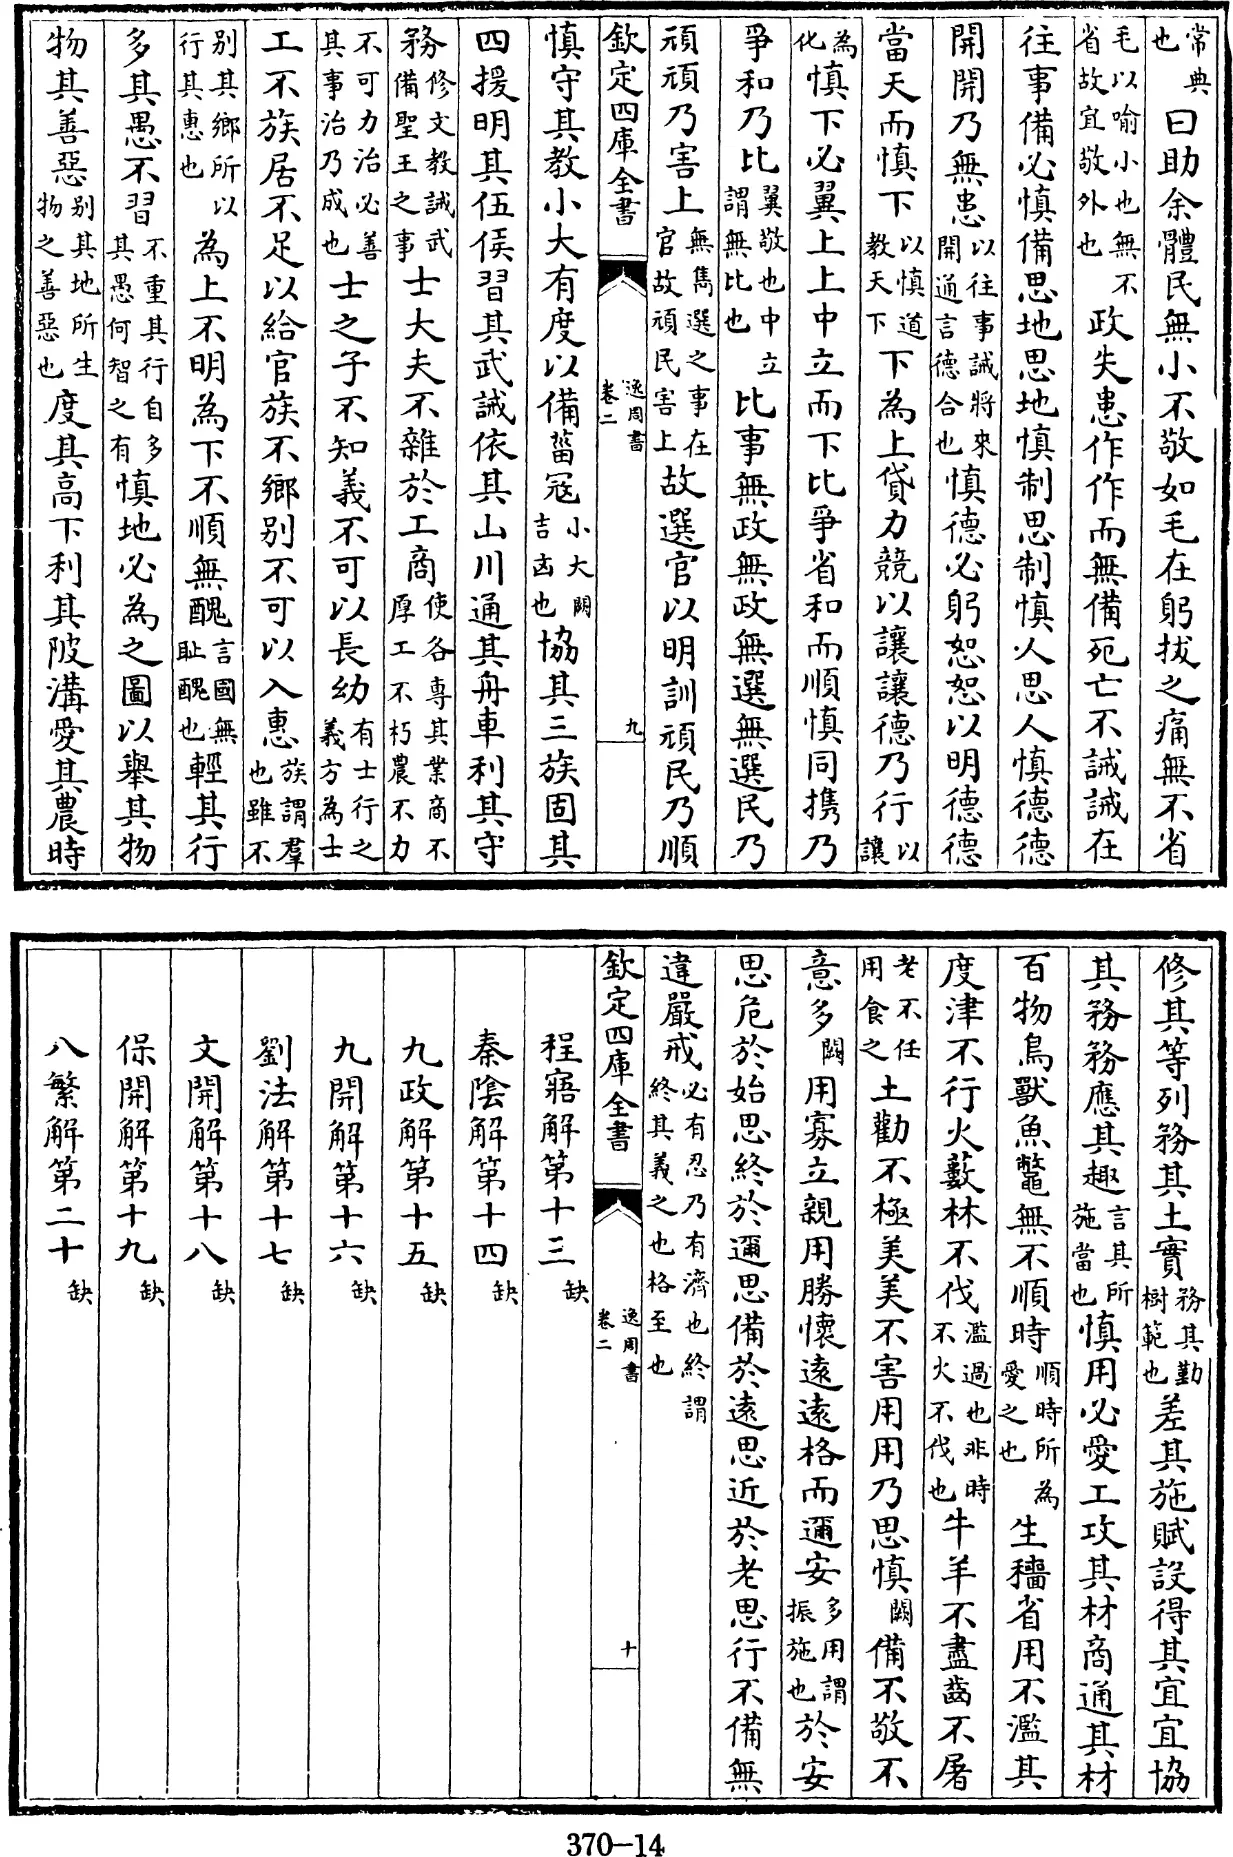 常典也曰助余體民無小不敬如毛在躬拔之痛無不省
毛以喻小也無不省故宜敬外也政失患作作而無備死亡不誡誡在
往事備必慎備思地思地慎制思制慎人思人慎德德
開開乃無患以往事誡將來開通言德合也慎德必躬恕恕以明德德
當天而慎下以慎道教天下下為上貸力競以讓讓德乃行以讓
為化慎下必翼上上中立而下比爭省和而順慎同攜乃
爭和乃比翼敬也中立謂無比也比事無政無政無選無選民乃
頑頑乃害上無雋選之事在官故頑民害上故選官以明訓頑民乃順
欽定四庫全書
逸周書
卷二
九
慎守其教小大有度以備菑寇小大闕吉凶也協其三族固其
四援明其伍侯習其武誡依其山川通其舟車利其守
務修文教誡武備聖王之事士大夫不雜於工商使各專其業商不厚工不朽農不力
不可力治必善其事治乃成也士之子不知義不可以長幼有士行之義方為士
工不族居不足以給官族不鄉別不可以入惠族謂羣也雖不
別其鄉所以行其惠也為上不明為下不順無醜言國無恥醜也輕其行
多其愚不習不重其行自多其愚何智之有慎地必為之圖以舉其物
物其善惡別其地所生物之善惡也度其高下利其陂溝愛其農時
修其等列務其土實務其勤樹範也差其施賦設得其宜宜協
其務務應其趣言其所施當也慎用必愛工攻其材商通其材
百物鳥獸魚鼈無不順時順時所為愛之也生穡省用不濫其
度津不行火藪林不伐濫過也非時不火不伐也牛羊不盡齒不屠
老不任用食之土勸不極美美不害用用乃思慎闕備不敬不
意多闕用寡立親用勝懷遠遠格而邇安多用謂振施也於安
思危於始思終於邇思備於遠思近於老思行不備無
違嚴戒必有忍乃有濟也終謂終其義之也格至也
欽定四庫全書
逸周書
卷二
十
程寤解第十三缺
秦陰解第十四缺
九政解第十五缺
九開解第十六缺
劉法解第十七缺
文開解第十八缺
保開解第十九缺
八繁解第二十缺
370-14